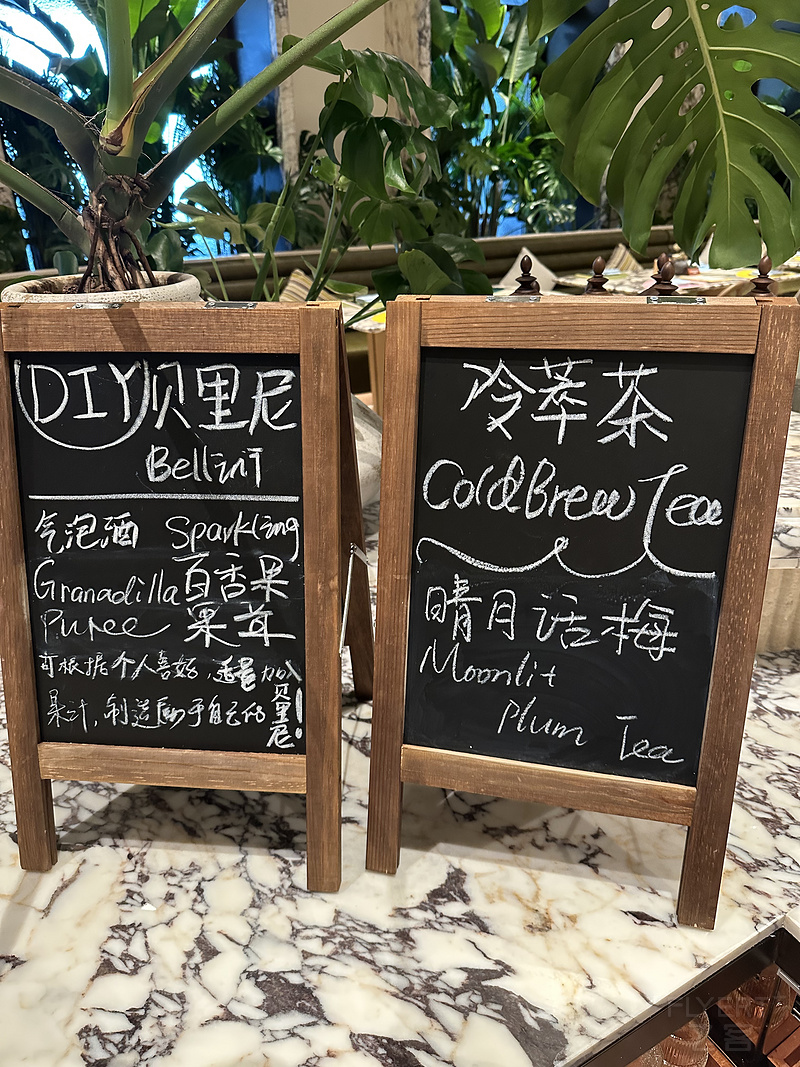 DIY贝里尼
Bellini
气泡酒 Sparkling
Granadilla百香果
Puree 果茸
可根据个人喜好，适量加入
果汁，制造属于自己的
贝里尼！
冷萃茶
Cold Brew Tea
晴月话梅
Moonlit
Plum Tea
FLYERT